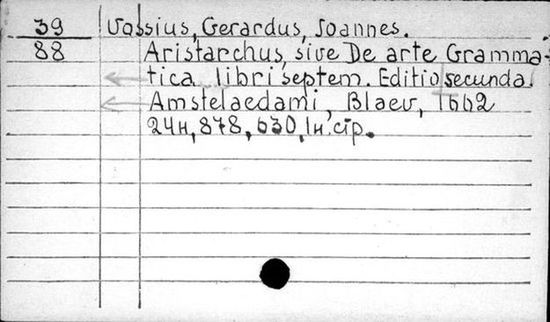 39 Vossius, Gerardus, Joannes.
88 Aristarchus, sive De arte Gramma-
tica libri septem. Editio secunda.
Amstelaedami, Blaev, 1662
24н, 878, 630, 1н. стр.